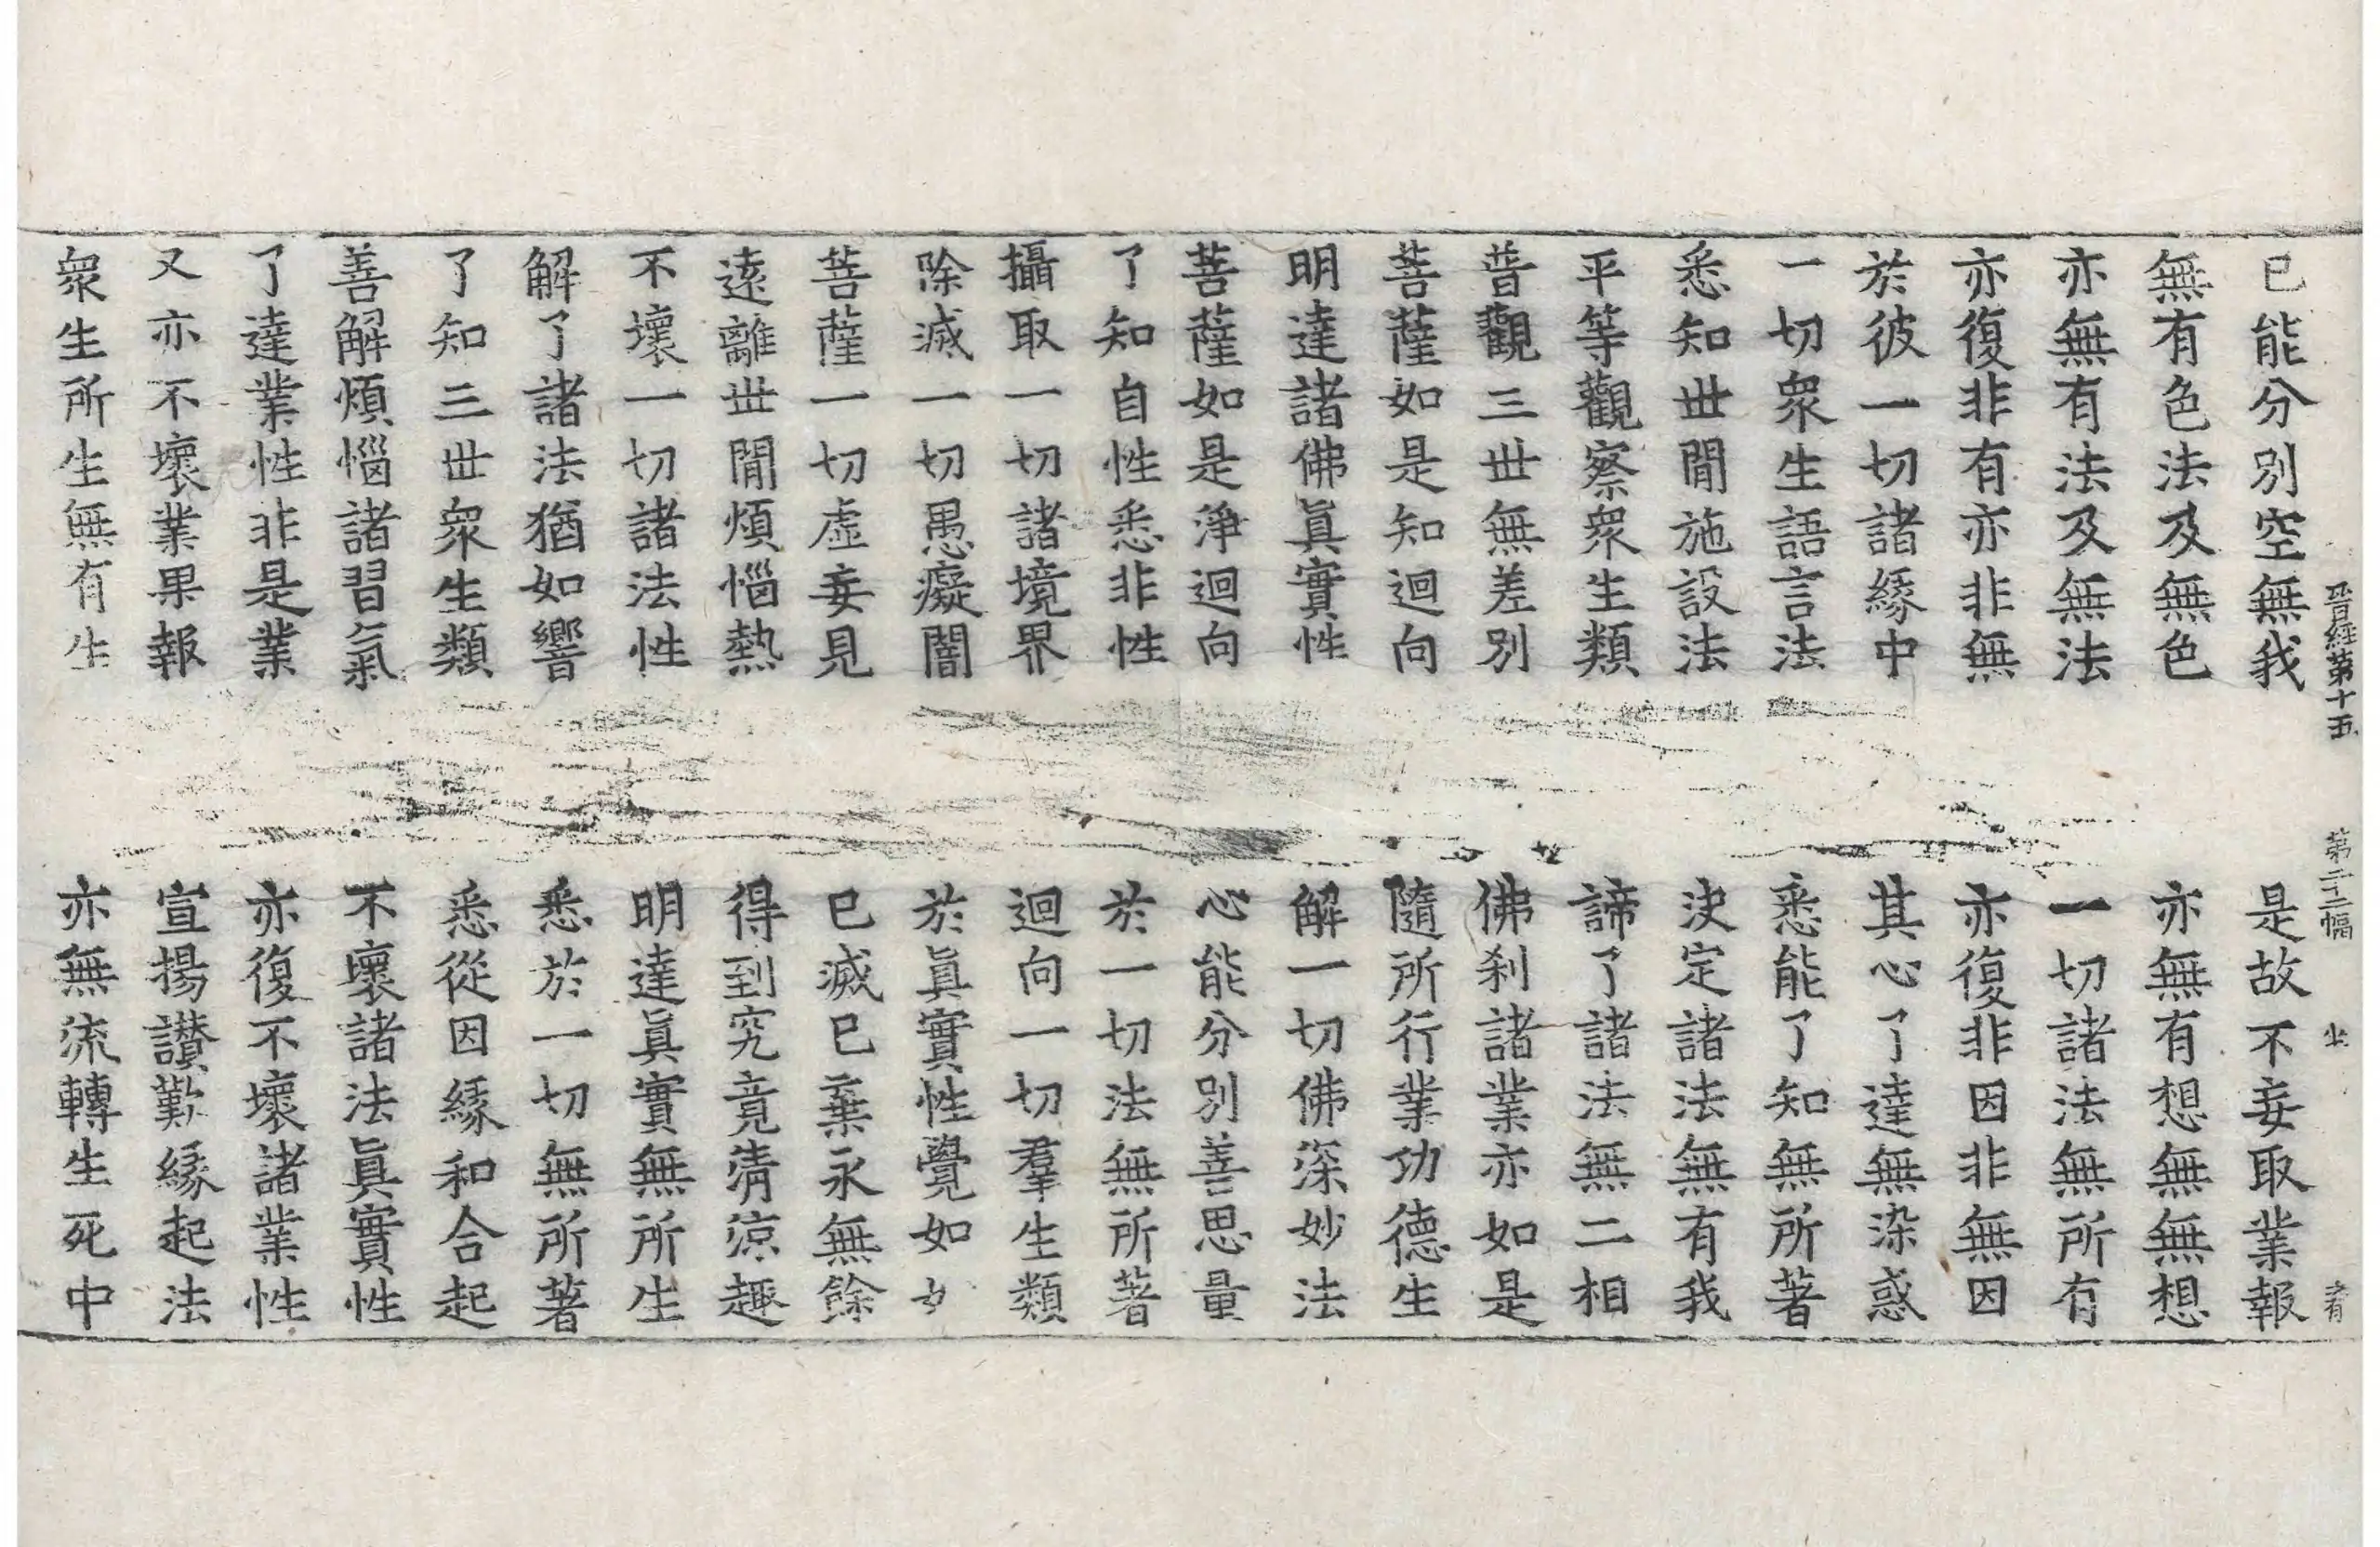 晋經第十五　第二十二幅
已能分別空無我　是故不妄取業報
無有色法及無色　亦無有想無無想
亦無有法及無法　一切諸法無所有
亦復非有亦非無　亦復非因非無因
於彼一切諸緣中　其心了達無染惑
一切眾生語言法　悉能了知無所著
悉知世間施設法　決定諸法無有我
平等觀察眾生類　諦了諸法無二相
普觀三世無差別　佛剎諸業亦如是
菩薩如是知迴向　隨所行業功德生
明達諸佛眞實性　解一切佛深妙法
菩薩如是淨迴向　心能分別善思量
了知自性悉非性　於一切法無所著
攝取一切諸境界　迴向一切羣生類
除滅一切愚癡闇　於眞實性覺如々
菩薩一切虛妄見　已滅已棄永無餘
遠離世間煩惱熱　得到究竟清涼趣
不壞一切諸法性　明達眞實無所生
解了諸法猶如響　悉於一切無所著
了知三世眾生類　悉從因緣和合起
善解煩惱諸習氣　不壞諸法眞實性
了達業性非是業　亦復不壞諸業性
又亦不壞業果報　宣揚讃歎緣起法
眾生所生無有生　亦無流轉生死中